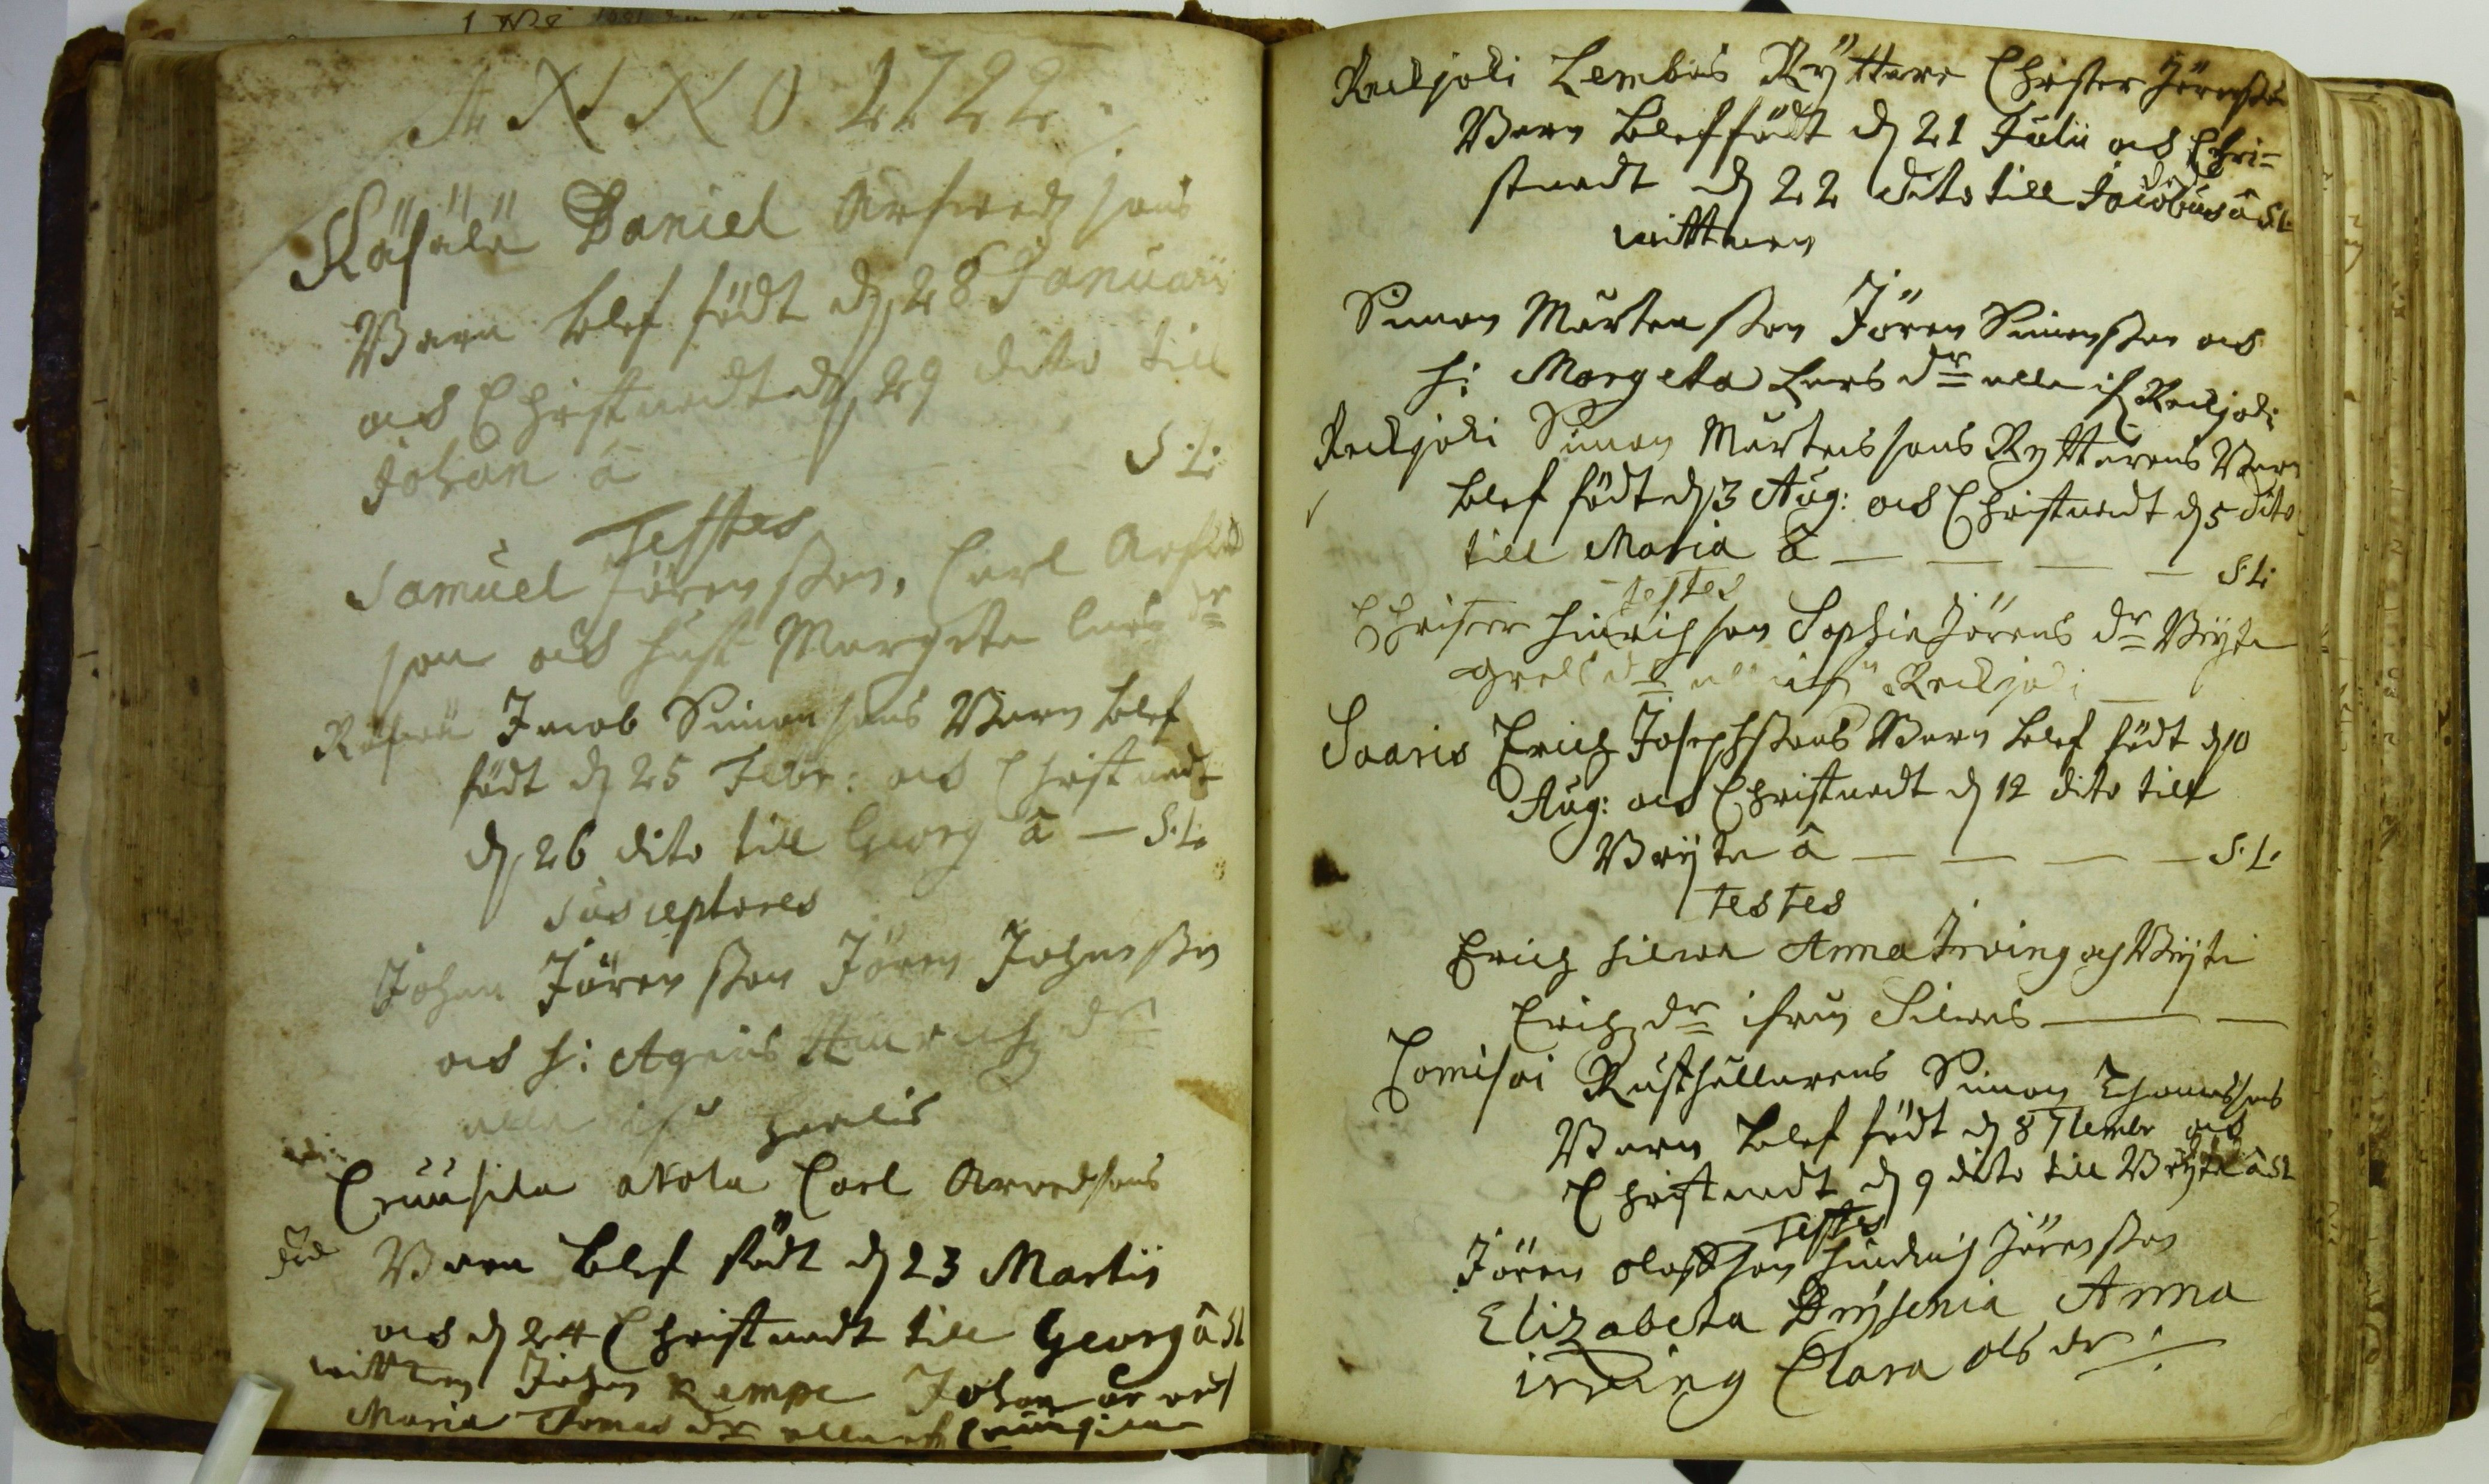 ANNO 1722
Räfälä Daniel Arfwedzsons
Barn blef födt dn 28 Januarii
och Christnadt dn 29 dito till
Johan â S:L:
Testes
Samuel Jörensson, Carl Arfwed
son och hust Margeta Lars dr
Jacob Simonsons Barn blef
födt dn 25 Febr: och Christnadt
dn 26 dito till Georg â — S:L:
Susceptores
Johan Jörensson Jören Johansson
och h: Agnis Hinrichz dr
alla ifrå
Cruusila Carl Arvedsons
Barn blef född dn 23 Martii
och dn 24 Christnadt till Georg â SL
wittnen Johan Kempe Johan
Maria Tomas dr alla if Cruusila
Reckjoki Lembois Ryttare Christer Jörensons
Barn blef födt dn 21 Julii och Chri-
stnadt dn 22 dito till Jacobus â S:L:
wittnen
Simon Mårtensson Jören Simonsson och
h: Margeta Lars dr alla if Reckjoki
Reckjoki Simon Mårtenssons Ryttarens Barn
blef födt dn 3 Aug: och Christnadt dn 5 dito
till Maria â — — — — S:L:
testes
Christer Hinrichson Sophia Jörens dr Brijta
Grels dr alla ifrå Reckjoki
Saaris Erich Josephssons Barn blef födt dn 10
Aug: och Christnadt dn 12 dito till
Brijta â — — — — S:L:
testes
Erich Anna Irving och Brijta
Erichz dr ifrån
Tomisoi Rusthållarens Simon Thomassons
Barn blef födt dn 8 7tembr och
Christnadt dn 9 dito till Brijta â SL
Testes
Jören Olofsson Hindrich Jörensson
Elizabeta Anna
irving Clara Ols dr